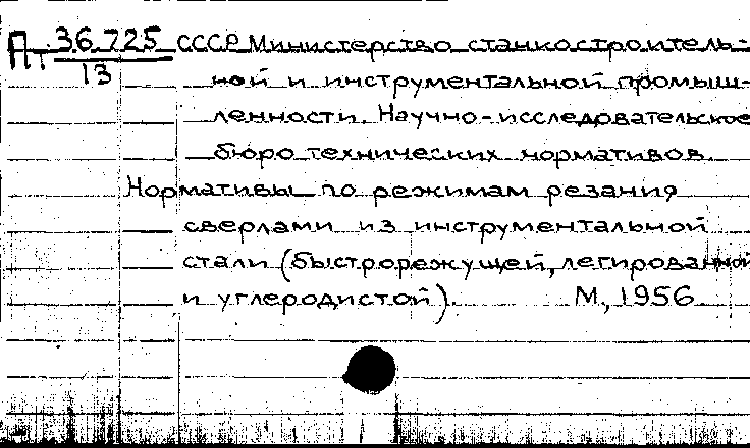 Пт 36.725 СССР Министерство станкостроитель-
13 ной и инструментальной промыш-
ленности. Научно-исследовательское
бюро технических нормативов.
Нормативы по режимам резания
сверлами из инструментальной
стали (быстрорежущей, легированной
и углеродистой). М., 1956.